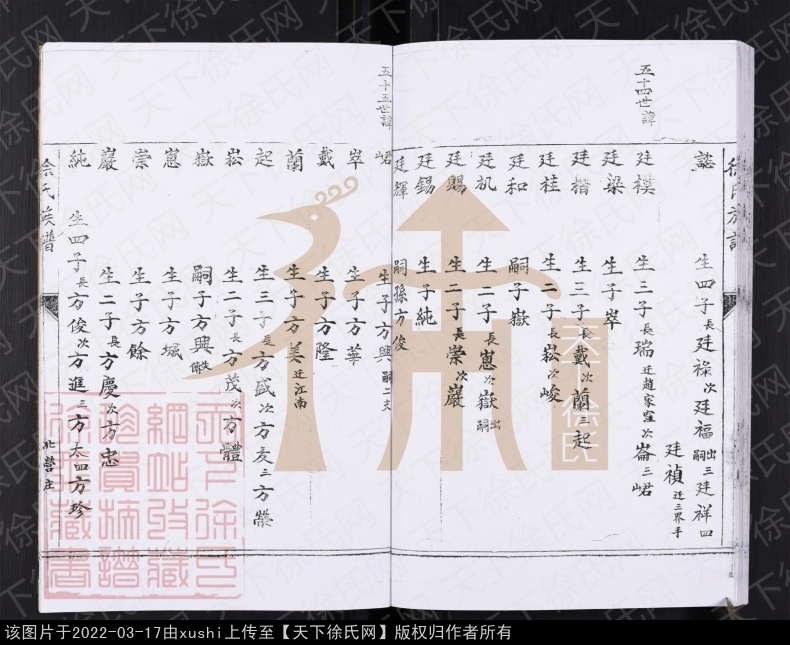 徐氏族譜
懿 生四子長廷祿次廷福出嗣三廷祥四廷禎迁三界手
五十四世諱
廷模 生三子長瑞迁趙家窪次崙三岷
廷梁 生子崒
廷楷 生三子長戴次蘭三起
廷桂 生二子長崧次峻
廷和 嗣子嶽
廷机 生二子長崽次嶽出嗣
廷賜 生二子長崇次巖
廷錫 生子純
廷輝 嗣孫方俊
五十五世諱
岷 生子方興嗣二大
崒 生子方華
戴 生子方隆
蘭 生子方美迁江南
起 生三子長方盛次方友三方榮
崧 生二子長方茂次方體
嶽 嗣子方興失傳
崽 生子方城
崇 生子方餘
巖 生二子長方慶次方忠
純 生四子長方俊次方進三方太四方珍
徐氏族譜
北營庄
天下徐氏
天下徐氏网
该图片于2022-03-17由xushi上传至【天下徐氏网】版权归作者所有